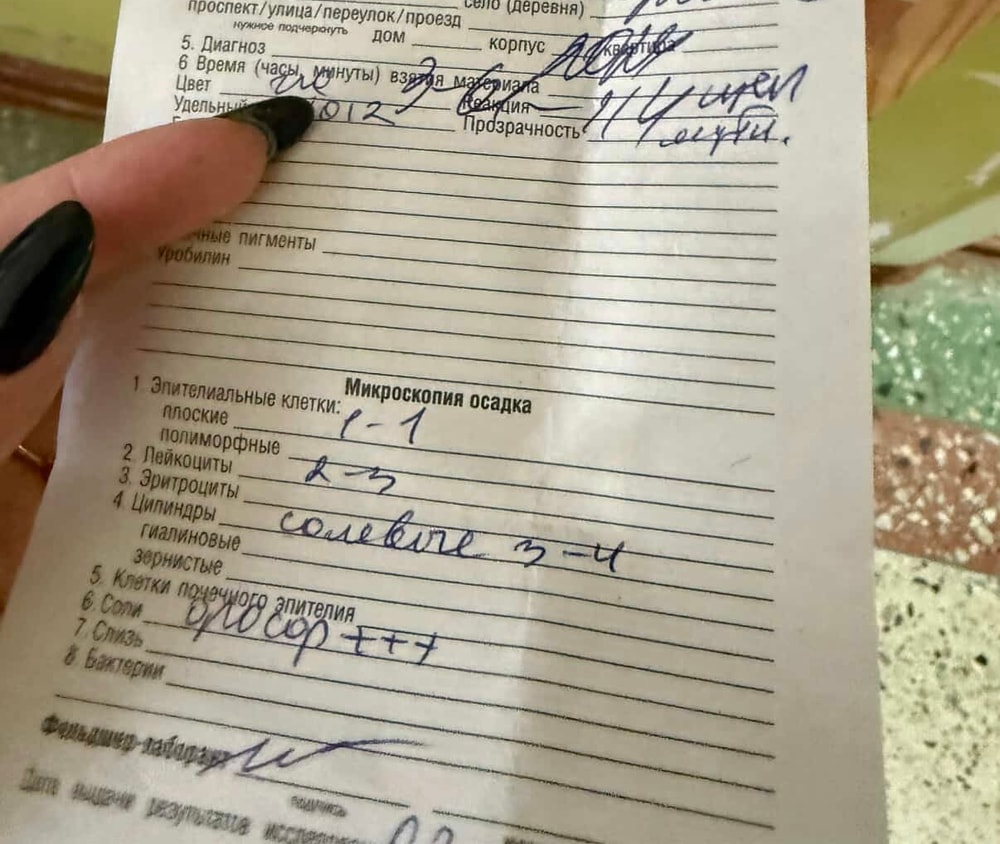 проспект/улица/переулок/проезд село (деревня)
нужное подчеркнуть дом корпус квартира
5. Диагноз
6 Время (часы, минуты) взятия материала
Цвет Реакция щел
Удельный 1012 Прозрачность мутн.
пигменты
Уробилин
Микроскопия осадка
1 Эпителиальные клетки:
плоские 1-1
полиморфные
2. Лейкоциты 2-3
3. Эритроциты
4 Цилиндры солевые 3-4
гиалиновые
зернистые
5. Клетки почечного эпителия
6. Соли +++
7. Слизь
8. Бактерии
фельдшер-лаборант
подпись
Дата выдачи результатов